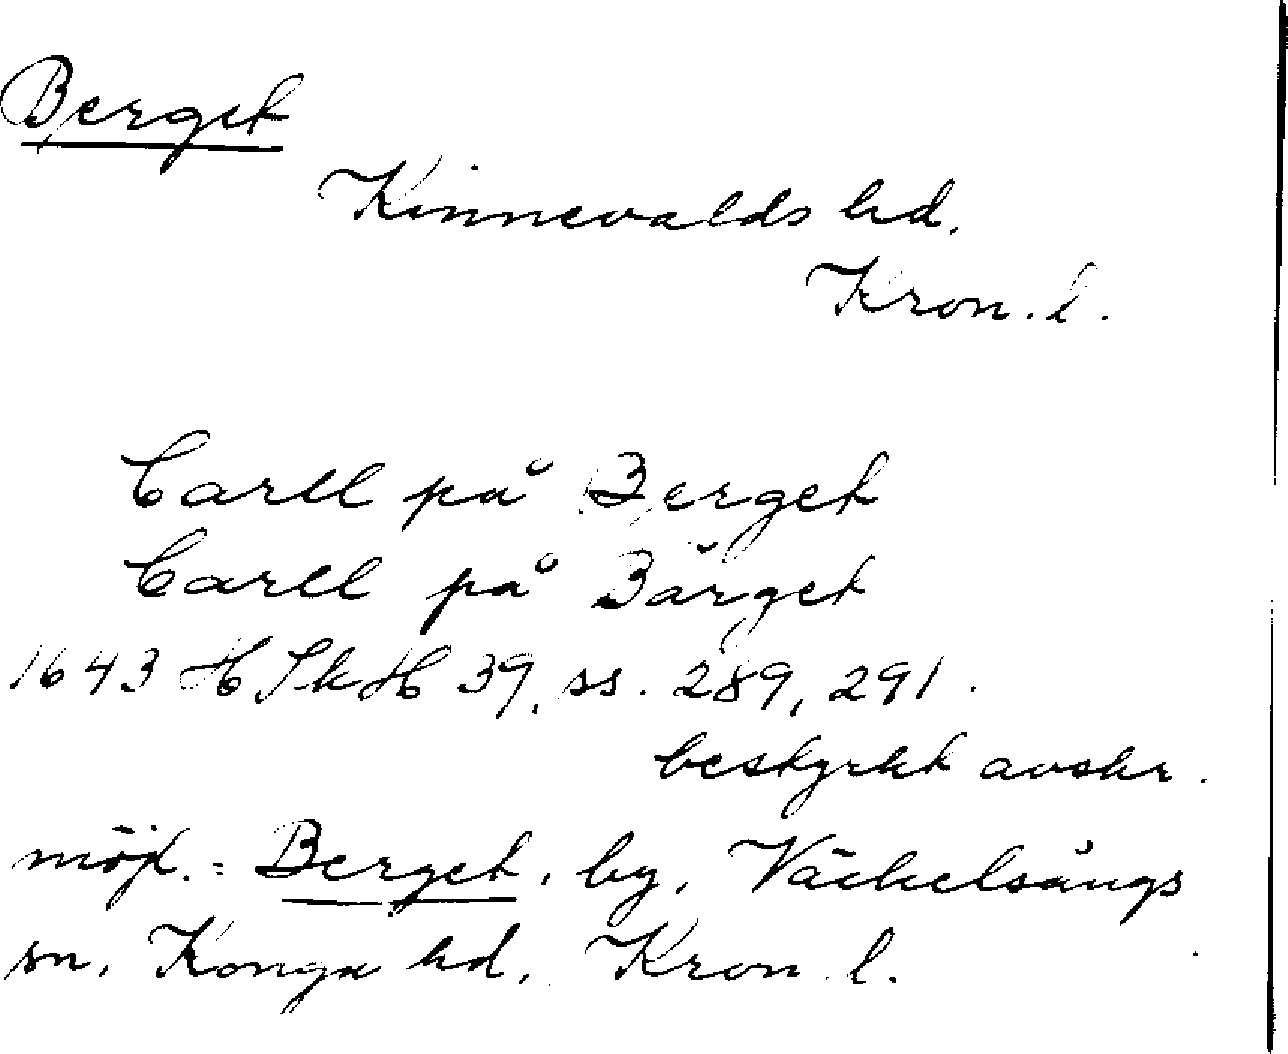 Berget
Kinnevalds hd.
Kron. l.
Carll på Berget
Carll på Bärget
1643 HSkH 39, ss. 289, 291.
bestyrkt avskr.
möjl. = Berget, by, Väckelsångs
sn, Konga hd, Kron. l.